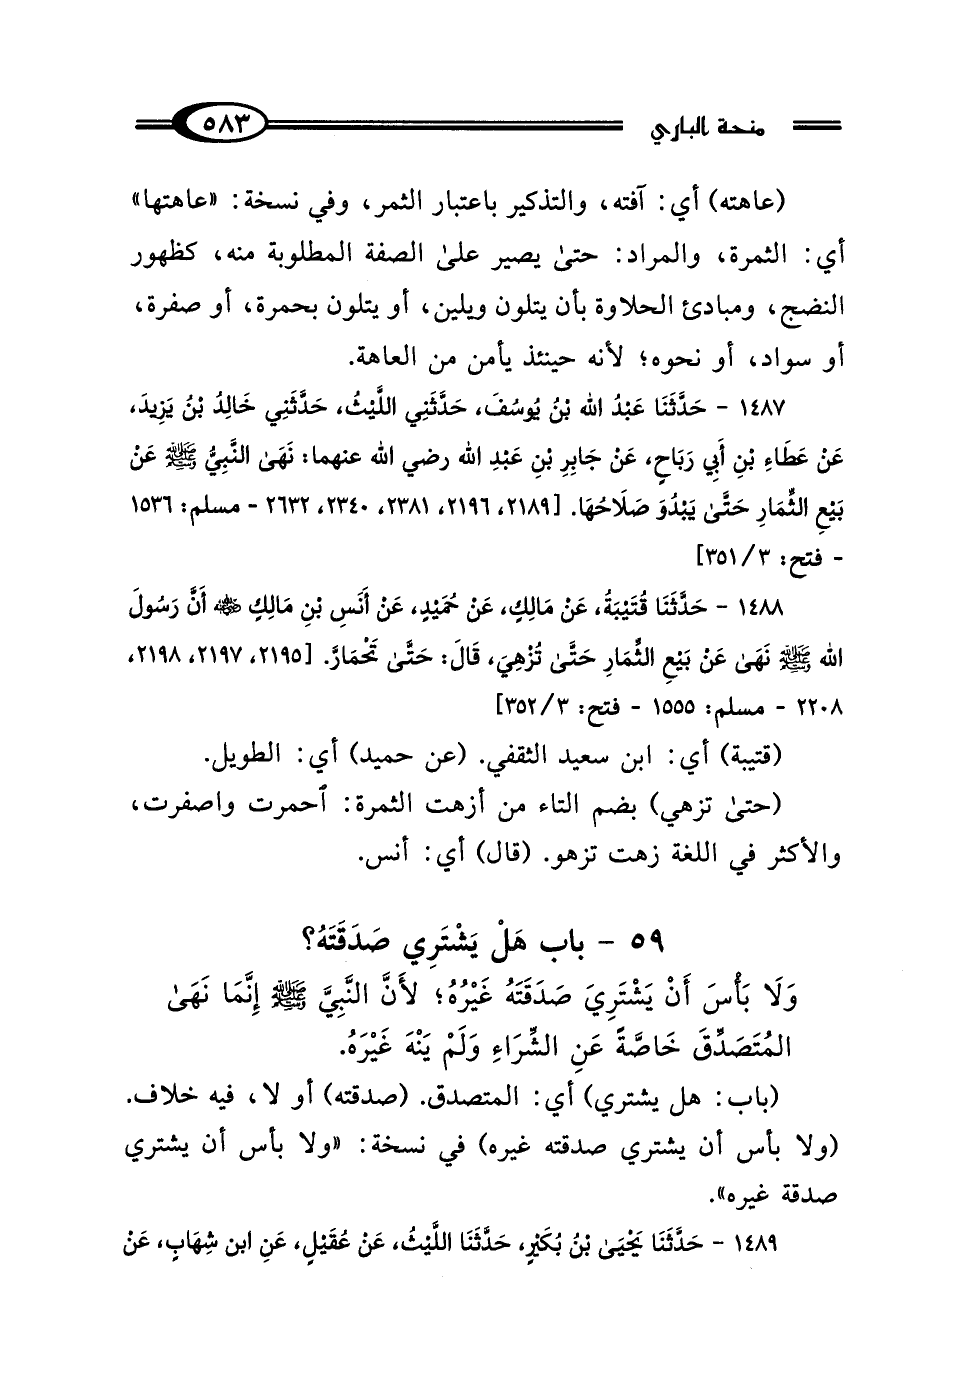 منحة الباري
٥٨٣
(عاهته) أي: آفته، والتذكير باعتبار الثمر، وفي نسخة: «عاهتها»
أي: الثمرة، والمراد: حتىٰ يصير علىٰ الصفة المطلوبة منه، كظهور
النضج، ومبادئ الحلاوة بأن يتلون ويلين، أو يتلون بحمرة، أو صفرة،
أو سواد، أو نحوه؛ لأنه حينئذ يأمن من العاهة.
١٤٨٧ - حَدَّثَنَا عَبْدُ الله بْنُ يُوسُفَ، حَدَّثَنِي اللَّيْثُ، حَدَّثَنِي خَالِدُ بْنُ يَزِيدَ،
عَنْ عَطَاءِ بْنِ أَبِي رَبَاحٍ، عَنْ جَابِرِ بْنِ عَبْدِ الله رضي الله عنهما: نَهَىٰ النَّبِيُّ ﷺ عَنْ
بَيْعِ الثِّمَارِ حَتَّىٰ يَبْدُوَ صَلَاحُهَا. [٢١٨٩، ٢١٩٦، ٢٣٨١، ٢٣٤٠، ٢٦٣٢ - مسلم: ١٥٣٦
- فتح: ٣/ ٣٥١]
١٤٨٨ - حَدَّثَنَا قُتَيْبَةُ، عَنْ مَالِكٍ، عَنْ حُمَيْدٍ، عَنْ أَنَسِ بْنِ مَالِكٍ ﵁ أَنَّ رَسُولَ
الله ﷺ نَهَىٰ عَنْ بَيْعِ الثِّمَارِ حَتَّىٰ تُزْهِيَ، قَالَ: حَتَّىٰ تَحْمَارَّ. [٢١٩٥، ٢١٩٧، ٢١٩٨،
٢٢٠٨ - مسلم: ١٥٥٥ - فتح: ٣/ ٣٥٢]
(قتيبة) أي: ابن سعيد الثقفي. (عن حميد) أي: الطويل.
(حتىٰ تزهي) بضم التاء من أزهت الثمرة: ٱحمرت واصفرت،
والأكثر في اللغة زهت تزهو. (قال) أي: أنس.
٥٩ - باب هَلْ يَشْتَرِي صَدَقَتَهُ؟
وَلَا بَأْسَ أَنْ يَشْتَرِيَ صَدَقَتَهُ غَيْرُهُ؛ لأَنَّ النَّبِيَّ ﷺ إِنَّمَا نَهَىٰ
المُتَصَدِّقَ خَاصَّةً عَنِ الشِّرَاءِ وَلَمْ يَنْهَ غَيْرَهُ.
(باب: هل يشتري) أي: المتصدق. (صدقته) أو لا، فيه خلاف.
(ولا بأس أن يشتري صدقته غيره) في نسخة: «ولا بأس أن يشتري
صدقة غيره».
١٤٨٩ - حَدَّثَنَا يَحْيَىٰ بْنُ بُكَيْرٍ، حَدَّثَنَا اللَّيْثُ، عَنْ عُقَيْلٍ، عَنِ ابن شِهَابٍ، عَنْ